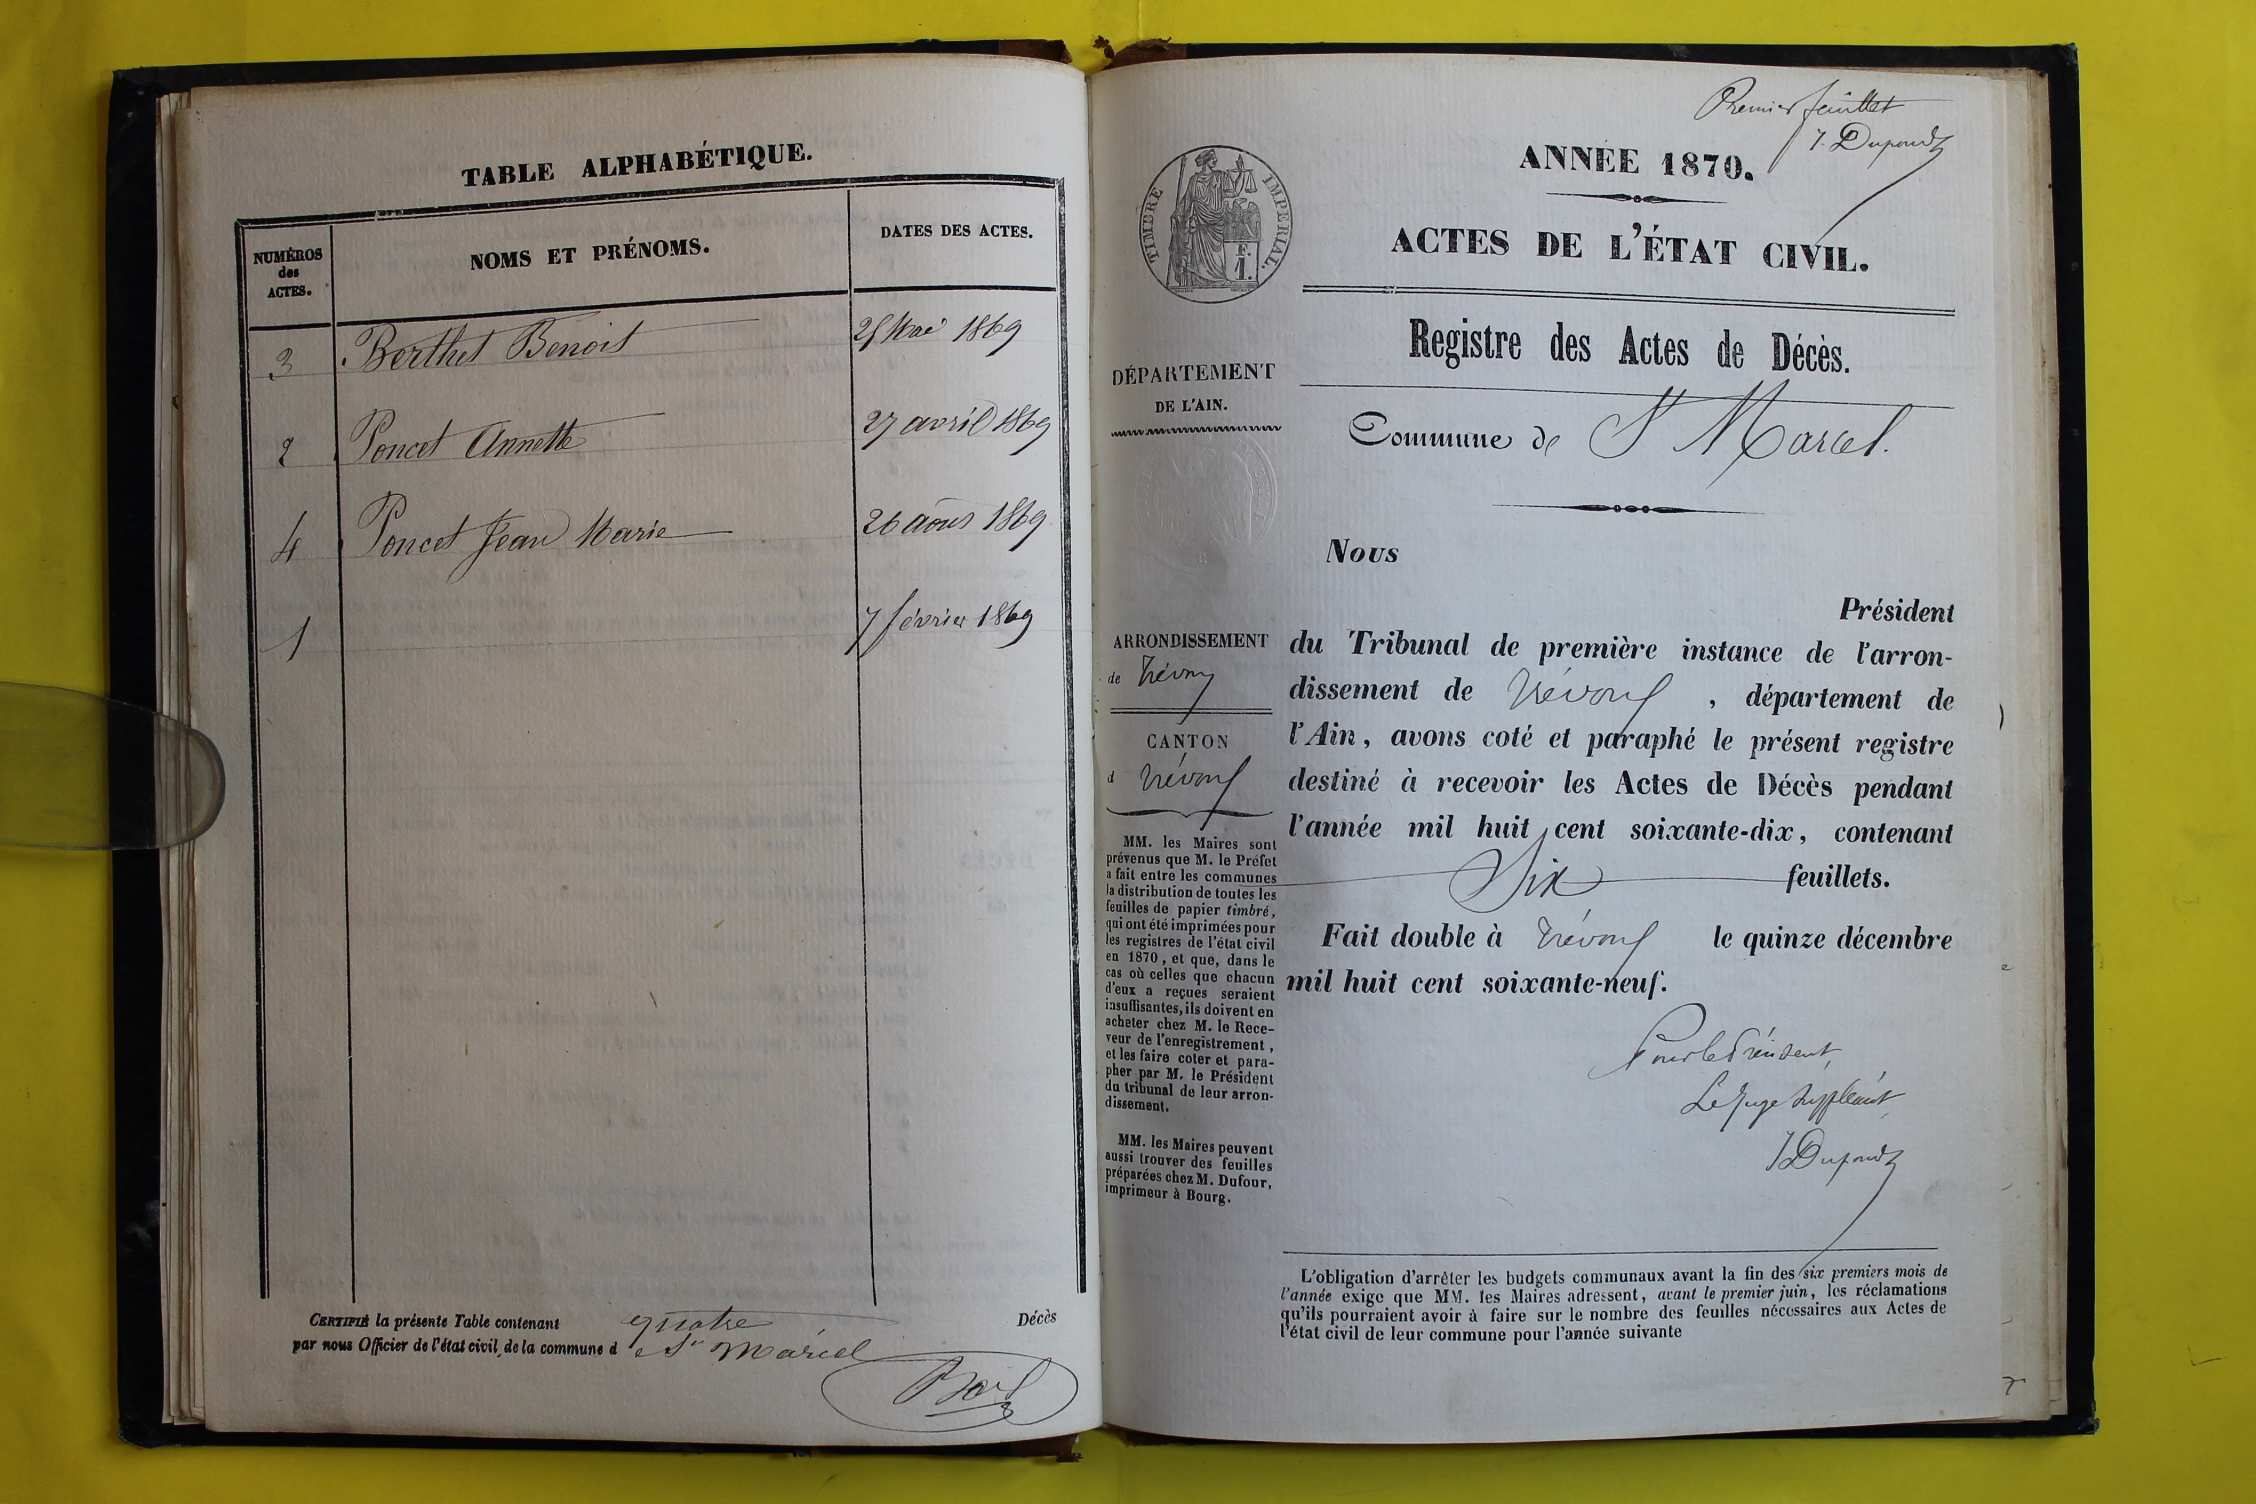 TABLE ALPHABÉTIQUE.
NUMÉROS
des
ACTES.
NOMS ET PRÉNOMS.
DATES DES ACTES.
3 Berthet Benoit 25 Mai 1869
2 Poncet Annette 27 avril 1869
4 Poncet Jean Marie 26 aous 1869
1 7 février 1869
CERTIFIÉ la présente Table contenant quatre Décès
par nous Officier de l'état civil, de la commune d e St Marcel
Premier feuillet
J. Dupond
TIMBRE IMPERIAL.
F.
1.
ANNÉE 1870.
ACTES DE L'ÉTAT CIVIL.
Registre des Actes de Décès.
Commune de St Marcel.
DÉPARTEMENT
DE L'AIN.
ARRONDISSEMENT
de Trévoux
CANTON
d Trévoux
MM. les Maires sont
prévenus que M. le Préfet
a fait entre les communes
la distribution de toutes les
feuilles de papier timbré,
qui ont été imprimées pour
les registres de l'état civil
en 1870, et que, dans le
cas où celles que chacun
d'eux a reçues seraient
insuffisantes, ils doivent en
acheter chez M. le Rece-
veur de l'enregistrement,
et les faire coter et para-
pher par M. le Président
du tribunal de leur arron-
dissement.
MM. les Maires peuvent
aussi trouver des feuilles
préparées chez M. Dufour,
imprimeur à Bourg.
Nous
Président
du Tribunal de première instance de l'arron-
dissement de Trévoux , département de
l'Ain, avons coté et paraphé le présent registre
destiné à recevoir les Actes de Décès pendant
l'année mil huit cent soixante-dix, contenant
Six feuillets.
Fait double à Trévoux le quinze décembre
mil huit cent soixante-neuf.
Pour le Président
Le Juge Suppléant
J Dupond
L'obligation d'arrêter les budgets communaux avant la fin des six premiers mois de
l'année exige que MM. les Maires adressent, avant le premier juin, les réclamations
qu'ils pourraient avoir à faire sur le nombre des feuilles nécessaires aux Actes de
l'état civil de leur commune pour l'année suivante